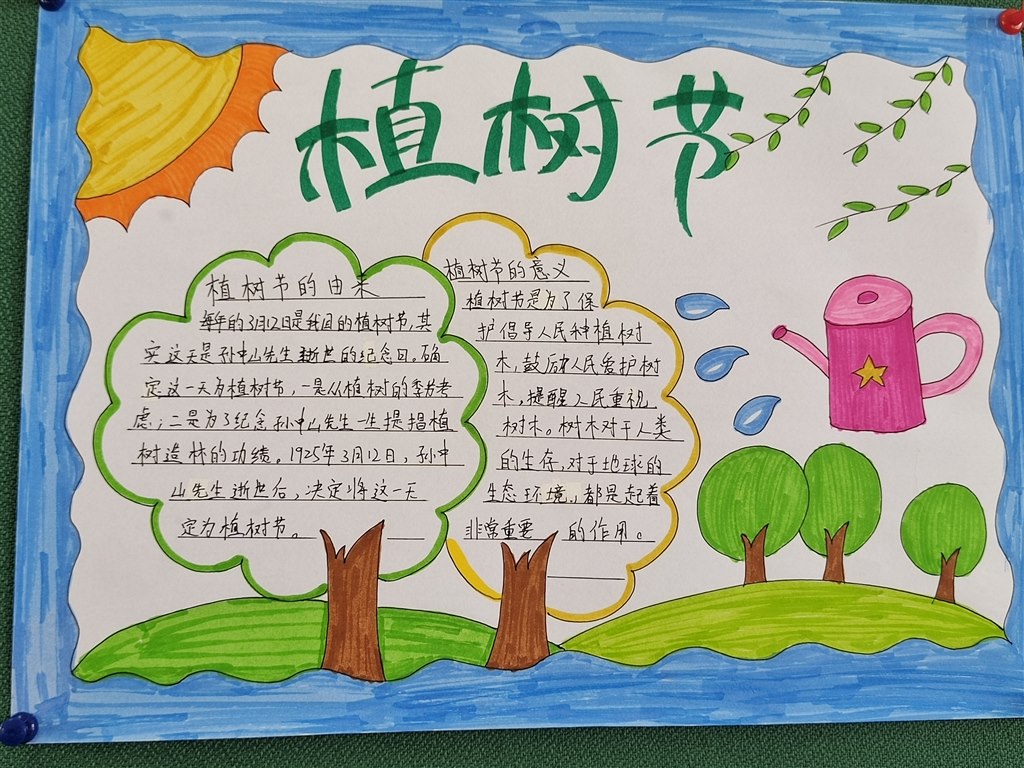 植树节
植树节的由来
每年的3月12日是我国的植树节,其
实这天是孙中山先生逝世的纪念日。确
定这一天为植树节,一是从植树的季节考
虑;二是为了纪念孙中山先生一生提揭植
树造林的功绩。1925年3月12日,孙中
山先生逝世后,决定将这一天
定为植树节。
植树节的意义
植树节是为了保
护倡导人民种植树
木,鼓励人民爱护树
木,提醒人民重视
树木。树木对于人类
的生存,对于地球的
生态环境,都是起着
非常重要 的作用。